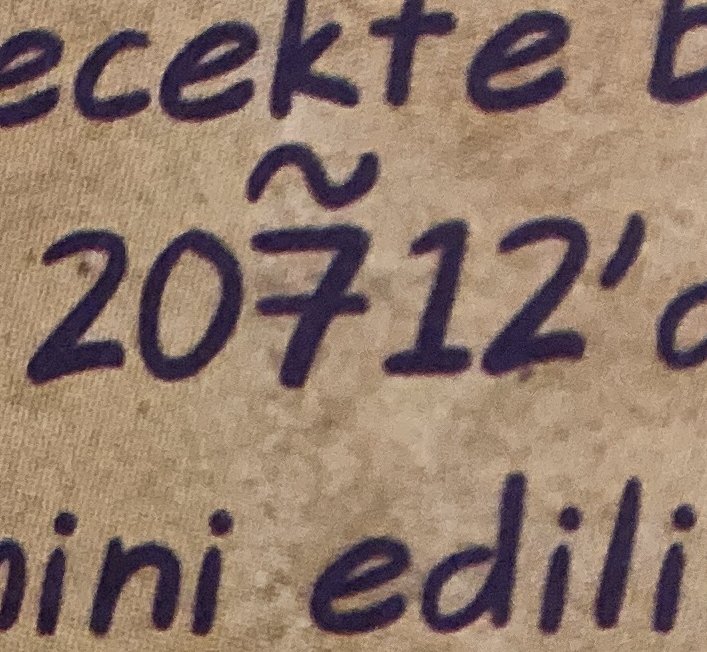 ecekte b
207̃12'd
nini edili